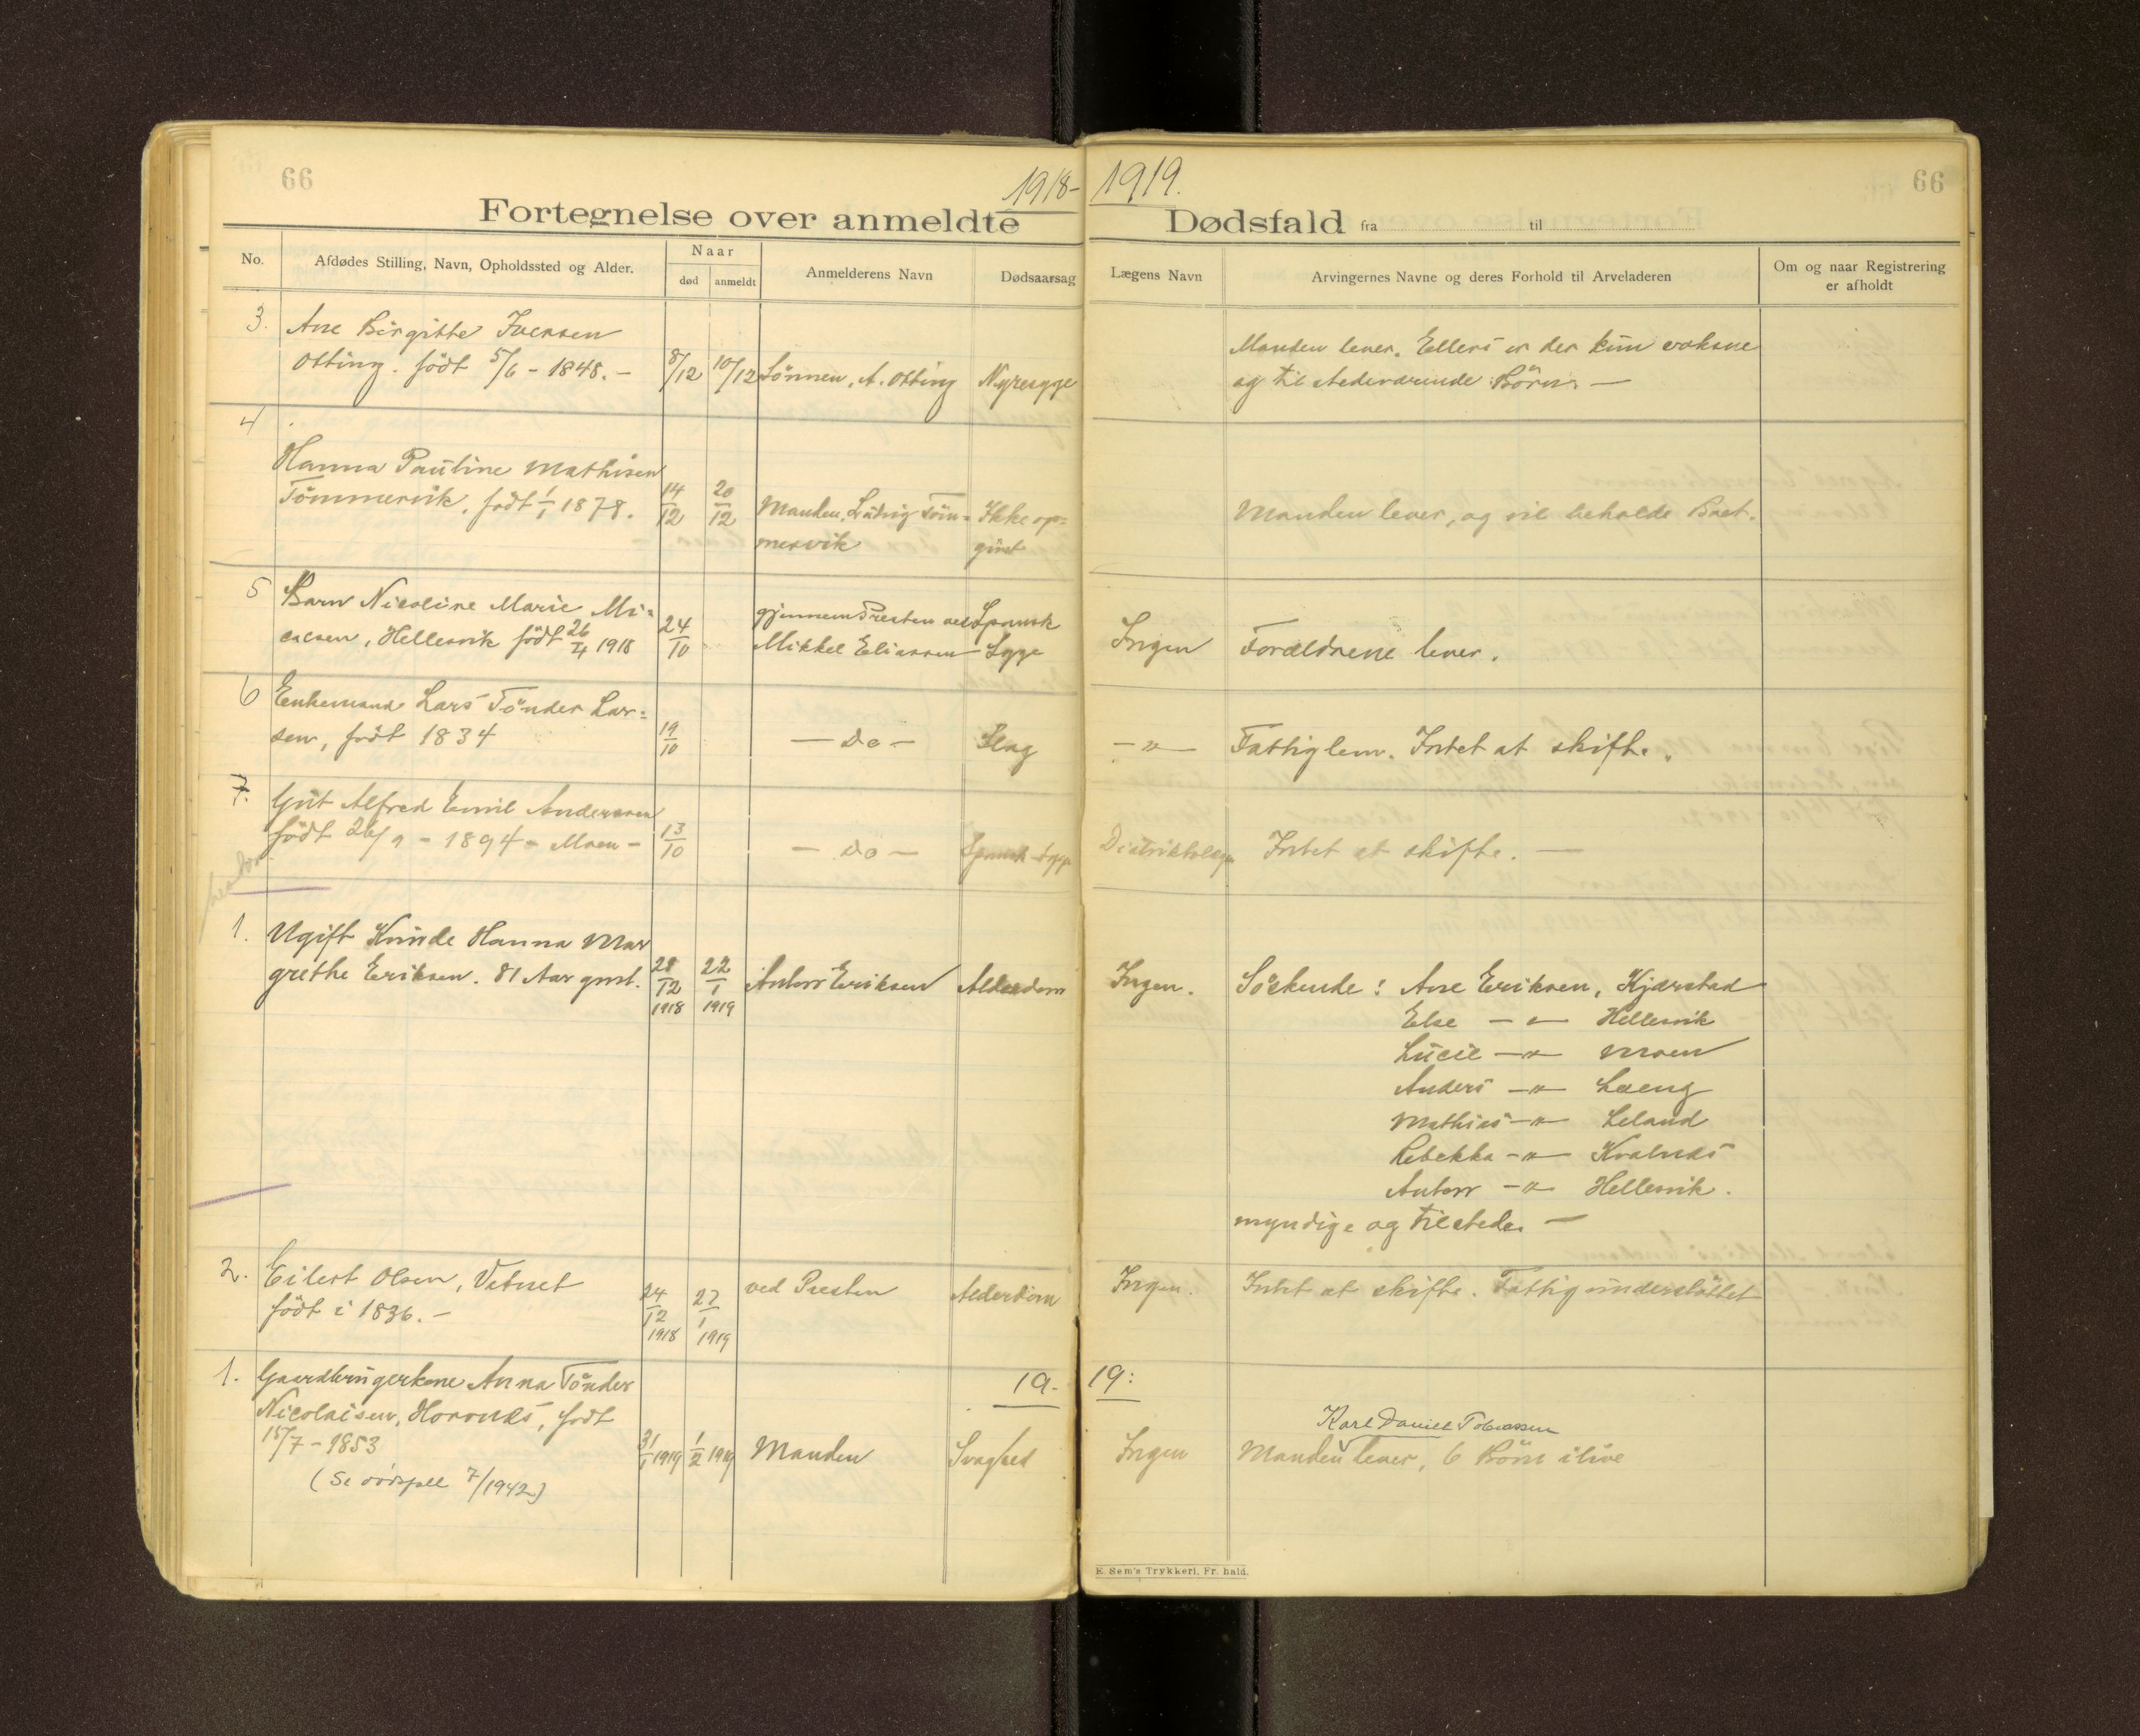 66
1918-
1919.
66
Fortegnelse over anmeldte
Dødsfald fra til
No.
Afdødes Stilling, Navn, Opholdssted og Alder.
Naar
død
anmeldt
Anmelderens Navn
Dødsaarsag
Lægens Navn
Arvingernes Navne og deres Forhold til Arveladeren
Om og naar Registrering
er afholdt
3. Ane Birgitte Iversen
Otting. födt 5/6 - 1848. - 8/12 10/12 Sönnen, A. Otting Nyresyge
Manden lever. Ellers er der kun voksne
og tilstedeværende Börn. -
4
Hanna Pauline Mathisen
Tömmervik, födt 1/1 1878. 14/12 20/12 Manden, Ludvig Töm=
mervik
Ikke op=
givet
Manden lever, og vil beholde Boet.
5 Barn Nicoline Marie Mi=
calsen, Hellesvik födt 26/4 1918 24/10
gjennem Presten ved
Mikkel Eliassen
Spansk
Syge
Ingen Forældrene lever.
6 Enkemand Lars Tönder Lar=
sen, födt 1834 19/10 - Do - Slag
- " - Fattiglem. Intet at skifte.
7. Gut Alfred Emil Andersen
födt 26/9 - 1894 - Moen - 13/10 - Do - Spansk Syge
Distriktslægen Intet at skifte. -
1. Ugift Kvinde Hanna Mar
grethe Eriksen. 81 Aar gml. 28/12 1918 22/1 1919 Anton Eriksen Alderdom
Ingen. Söskende: Ane Eriksen, Kjærstad
Else - " - Hellesvik
Lucie - " - Moen
Anders - " - Laeng
Mathias - " - Leland
Rebekka - " - Kvalnes
Anton - " - Hellesvik.
myndige og tilstede. -
2. Eilert Olsen, Vetnet
födt i 1836. - 24/12 1918 27/1 1919 ved Presten Alderdom
Ingen. Intet at skifte. Fattigunderstöttet
19-
19:
1. Gaardbrugerkone Anna Tönder
Nicolaisen, Hornnes, födt
15/7 - 1853 31/1 1919 1/2 1919 Manden Svaghed
(Se dödsfall 7/1942)
Karl Daniel Tobiassen
Ingen Manden lever, 6 Börn ilive
E. Sem's Trykkeri, Fr. hald.